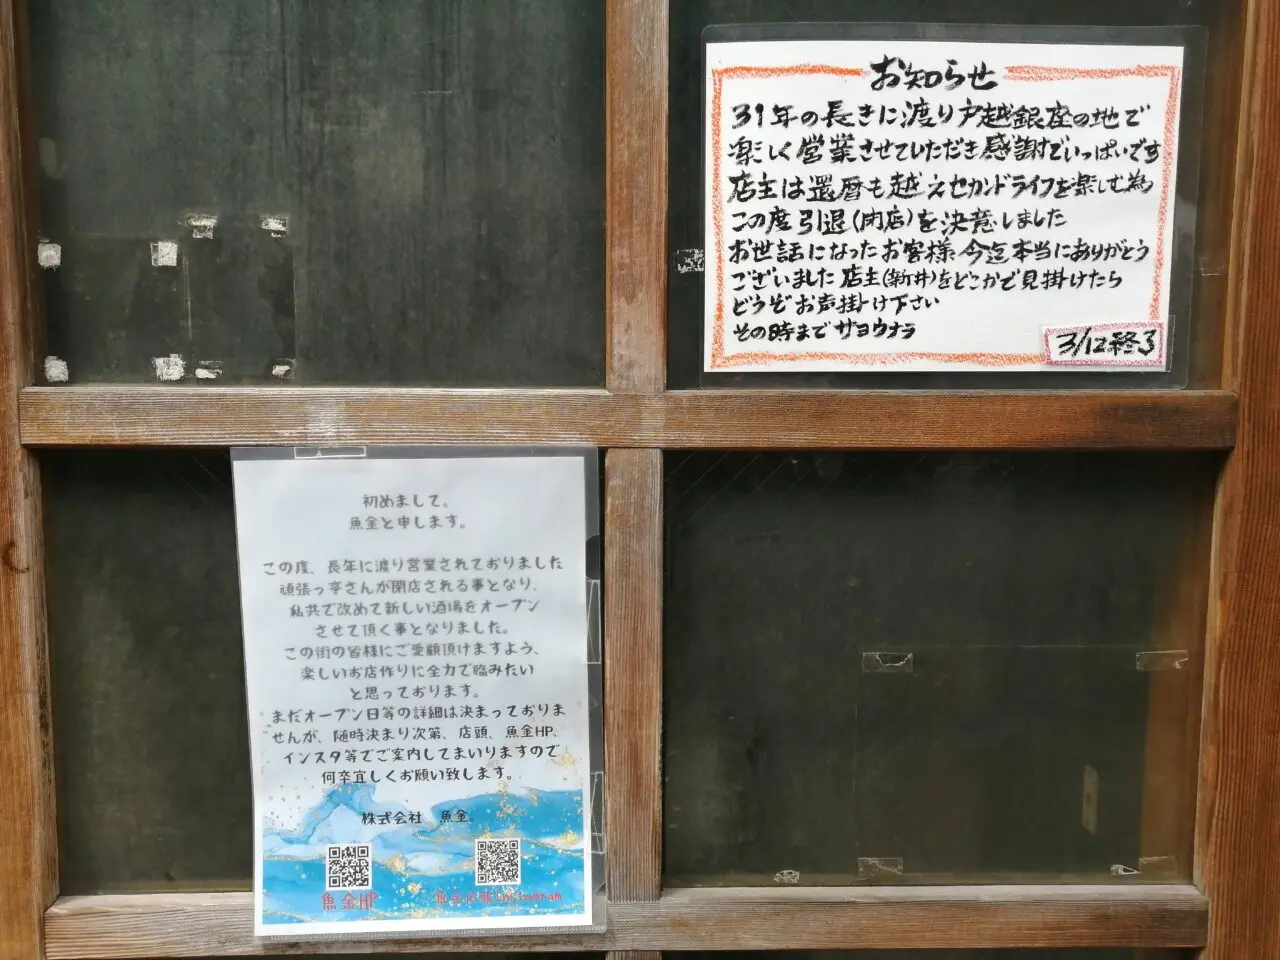 お知らせ
31年の長きに渡り戸越銀座の地で
楽しく営業させていただき感謝でいっぱいです
店主は還暦も越えセカンドライフを楽しむ為
この度引退(閉店)を決意しました
お世話になったお客様今迄本当にありがとう
ございました店主(新井)をどこかで見掛けたら
どうぞお声掛け下さい
その時までサヨウナラ
3/12終了
初めまして。
魚金と申します。
この度、長年に渡り営業されておりました
頑張っ亭さんが閉店される事となり、
私共で改めて新しい酒場をオープン
させて頂く事となりました。
この街の皆様にご愛顧頂けますよう、
楽しいお店作りに全力で臨みたい
と思っております。
まだオープン日等の詳細は決まっておりま
せんが、随時決まり次第、店頭、魚金HP、
インスタ等でご案内してまいりますので
何卒宜しくお願い致します。
株式会社 魚金。
魚金HP
Instagram